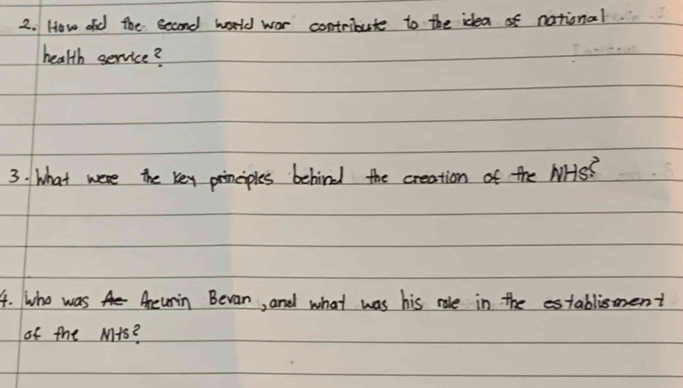 2. How did the second world war contribute to the idea of national
health service?
3. What were the key principles behind the creation of the NHS?
4. Who was Aneurin Bevan, and what was his role in the establisment
of the NHS?